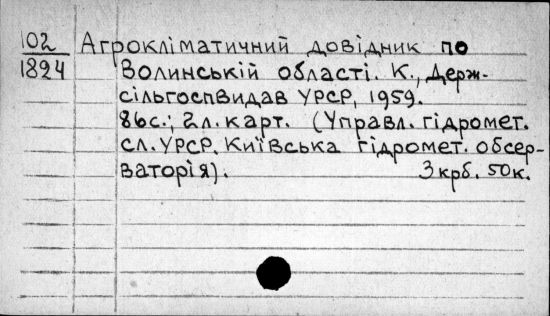 102 Агрокліматичний довідник по
1824 Волинській області. К., Держ-
сільгоспвидав УРСР, 1959.
86с.; 2л. карт. (Управл. гідромет.
сл. УРСР. Київська гідромет. обсер-
ваторія). 3 крб. 50к.